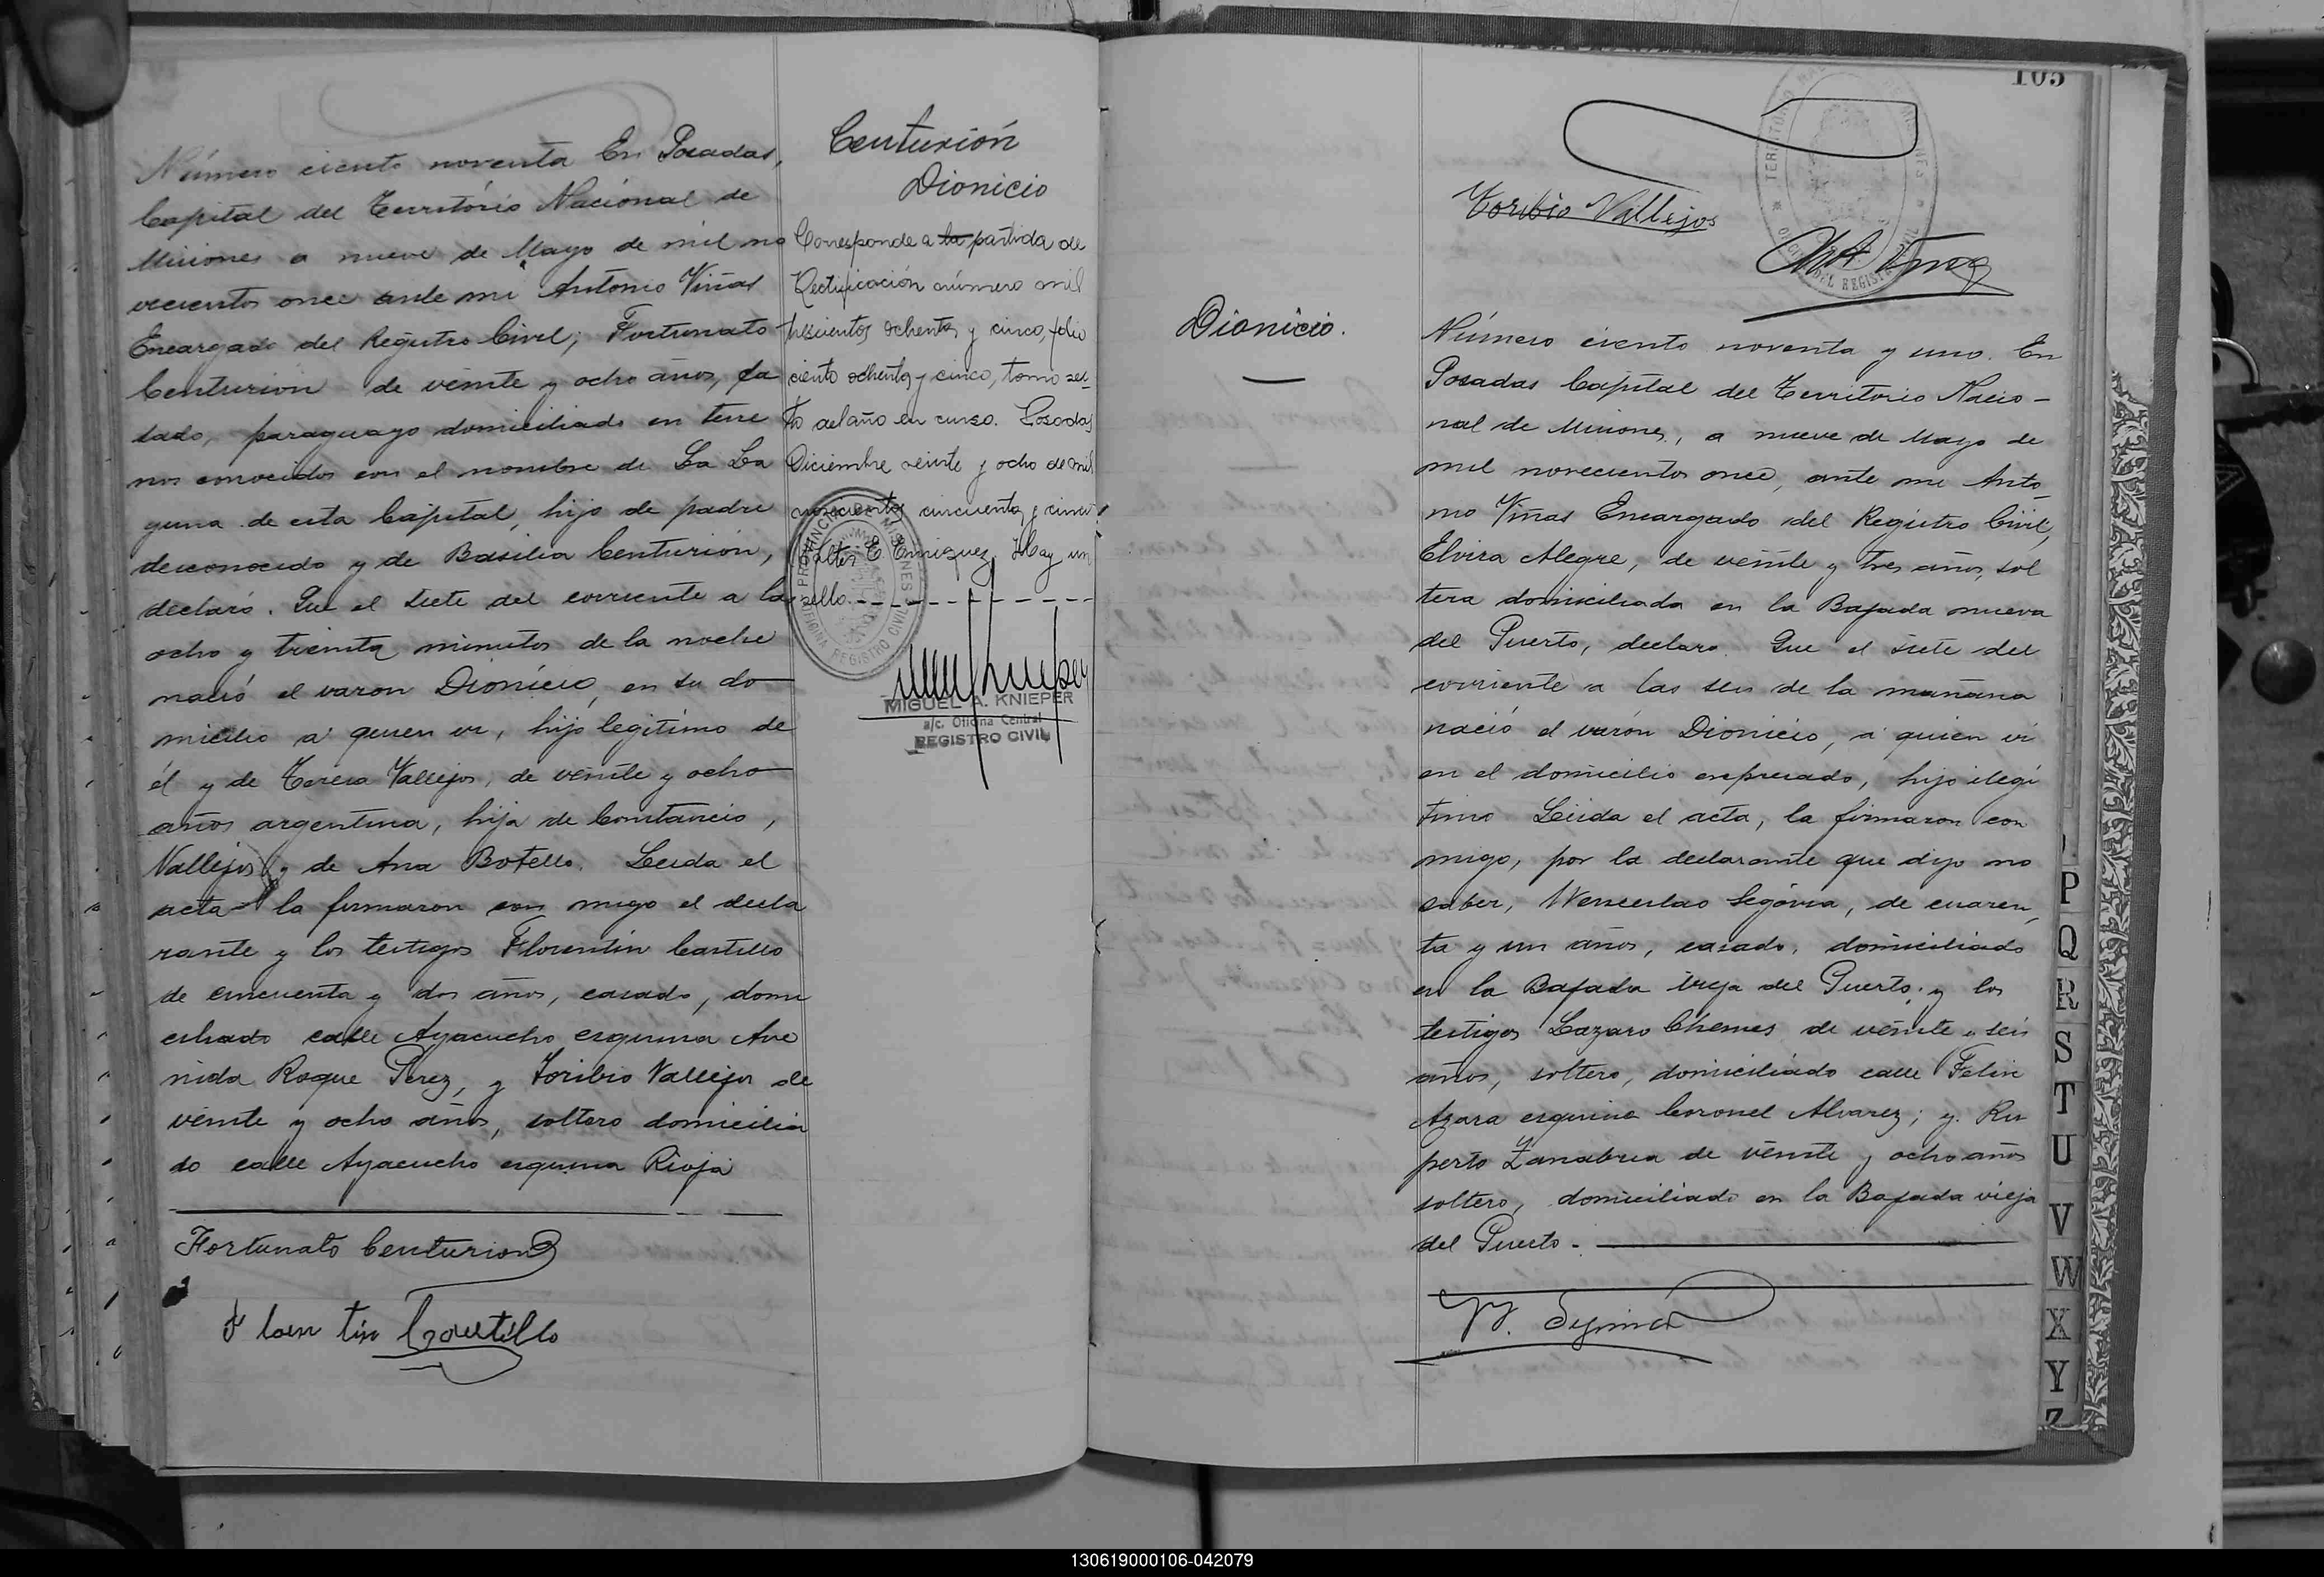 Número ciento noventa En Posadas,
Capital del Território Nacional de
Misiones a nueve de Mayo de mil no
vecientos once ante mi Antonio Viñas
Encargado del Registro Civil; Fortunato
Centurion de veinte y ocho años, ca
sado, paraguayo domiciliado en terre
nos conocidos con el nombre de La La
guna de esta Capital, hijo de padre
desconocido y de Basilia Centurión,
declaró. Que el siete del corriente a las
ocho y treinta minutos de la noche
nació el varon Dionicio, en su do
micilio a quien vi, hijo legitimo de
él y de Teresa Vallejos, de veinte y ocho
años argentina, hija de Constancio,
Vallejos y de Ana Botello. Leida el
acta la firmaron con migo el decla
rante y los testigos Florentin Castillo
de cincuenta y dos años, casado, domi
ciliado calle Ayacucho esquina Ave
nida Roque Perez, y Toribio Vallejos de
veinte y ocho años, soltero domicilia
do calle Ayacucho esquina Rioja
Fortunato Centurion
Floren tin Castillo
Centurión
Dionicio
Corresponde a la partida de
Rectificación número mil
trescientos ochenta y cinco, folio
ciento ochenta y cinco, tomo sex-
to del año en curso. Posadas
Diciembre veinte y ocho de mil
novecientos cincuenta y cinco.
Walter E Enriquez. Hay un
sello.
PROVINCIA DE MISIONES
OFICINA REGISTRO CIVIL
MIGUEL A. KNIEPER
a/c. Oficina Central
REGISTRO CIVIL
105
Toribio Vallejos
Dionicio.
Número ciento noventa y uno. En
Posadas Capital del Territorio Nacio-
nal de Misiones, a nueve de Mayo de
mil novecientos once, ante mi Anto-
nio Viñas Encargado del Registro Civil,
Elvira Alegre, de veinte y tres años, sol
tera domiciliada en la Bajada nueva
del Puerto, declaro. Que el siete del
corriente a las seis de la mañana
nació el varón Dionicio, a quien vi
en el domicilio expresado, hijo ilegi
timo Leida el acta, la firmaron con
migo, por la declarante que dijo no
saber, Wenceslao Segovia, de cuaren
ta y un años, casado, domiciliado
en la Bajada vieja del Puerto; y los
testigos Lazaro Chemes de veinte y seis
años, soltero, domiciliado calle Felix
Azara esquina Coronel Alvarez; y Ru
perto Zanabria de veinte y ocho años
soltero, domiciliado en la Bajada vieja
del Puerto.
W. Segovia
P
Q
R
S
T
U
V
W
X
Y
Z
130619000106-042079